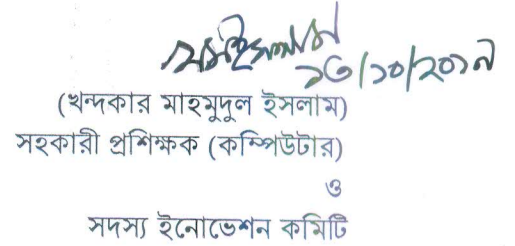 ১৩/১০/২০১৯
(খন্দকার মাহমুদুল ইসলাম)
সহকারী প্রশিক্ষক (কম্পিউটার)
ও
সদস্য ইনোভেশন কমিটি